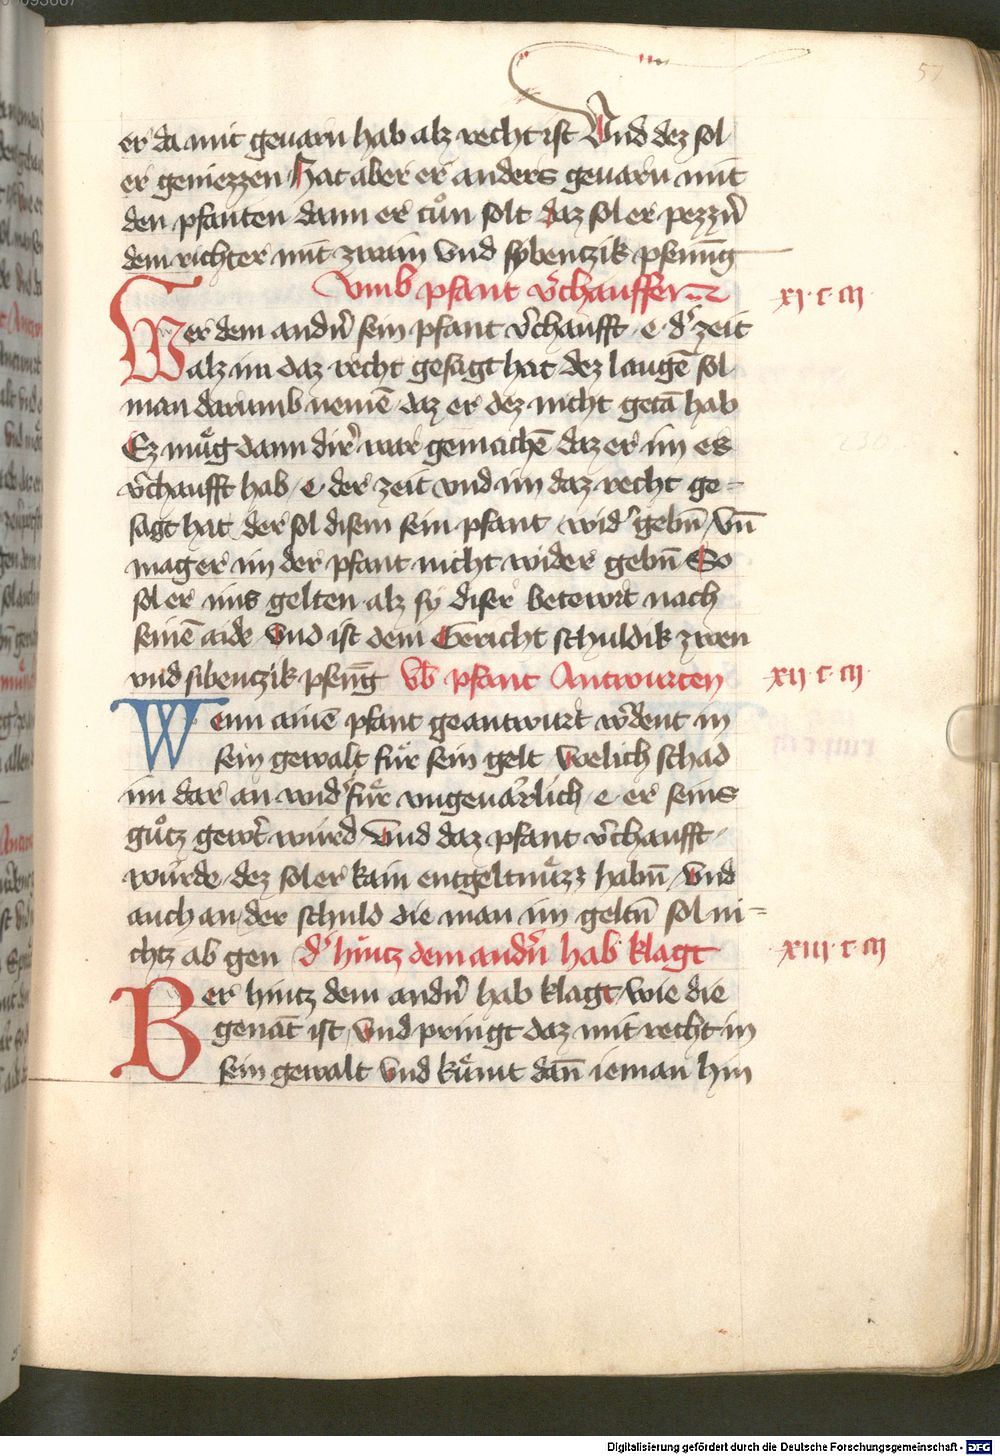 57
er da mit geuarn hab alz recht ist Vnd dez sol
er geniezzen Hat aber er anders geuarn mit
den pfanten dann er tuͦn solt daz sol er pezzn̄
dem richter mit zwain vnd sybenczik pfening
Vmb pfant v̄chauffen xj · c · iij
Wer dem andn̄ sein pfant v̄chaufft · e · d' zeit
alz im daz recht gesagt hat dez laugē sol
man darumb nemē daz er dez nicht getā hab
Ez muͤg dann dir' war gemachē daz er im es
v̄chaufft hab · e · der zeit vnd im daz recht ge=
sagt hat der sol disem sein pfant wid' gebn̄ Vn̄
mag er im der pfant nicht wider gebn̄ So
sol er ims gelten alz sy diser betewrt nach
seinē aide Vnd ist dem Gericht schuldik zwen
vnd sibenczik pfen̄g Vb̄ pfant Antwurten xij · c · iij
Wenn ainē pfant geantwurt w'dent in
sein gewalt fuͤr sein gelt Welich schad
im dar an wid'fuͤr vngeuarlich · e · er seins
guͦtz gew't wurd Vnd daz pfant v̄chaufft
wuͤrde dez sol er kain entgeltnuͤzz habn̄ Vnd
auch an der schuld die man im geltn̄ sol ni=
chtz ab gen d' hintz dem andn̄ hab klagt xiij · c · iij
Ber hintz dem andn̄ hab klagt wie die
genāt ist Vnd pringt daz mit recht in
sein gewalt Vnd kuͤmt dan̄ ieman hin
Digitalisierung gefördert durch die Deutsche Forschungsgemeinschaft - DFG